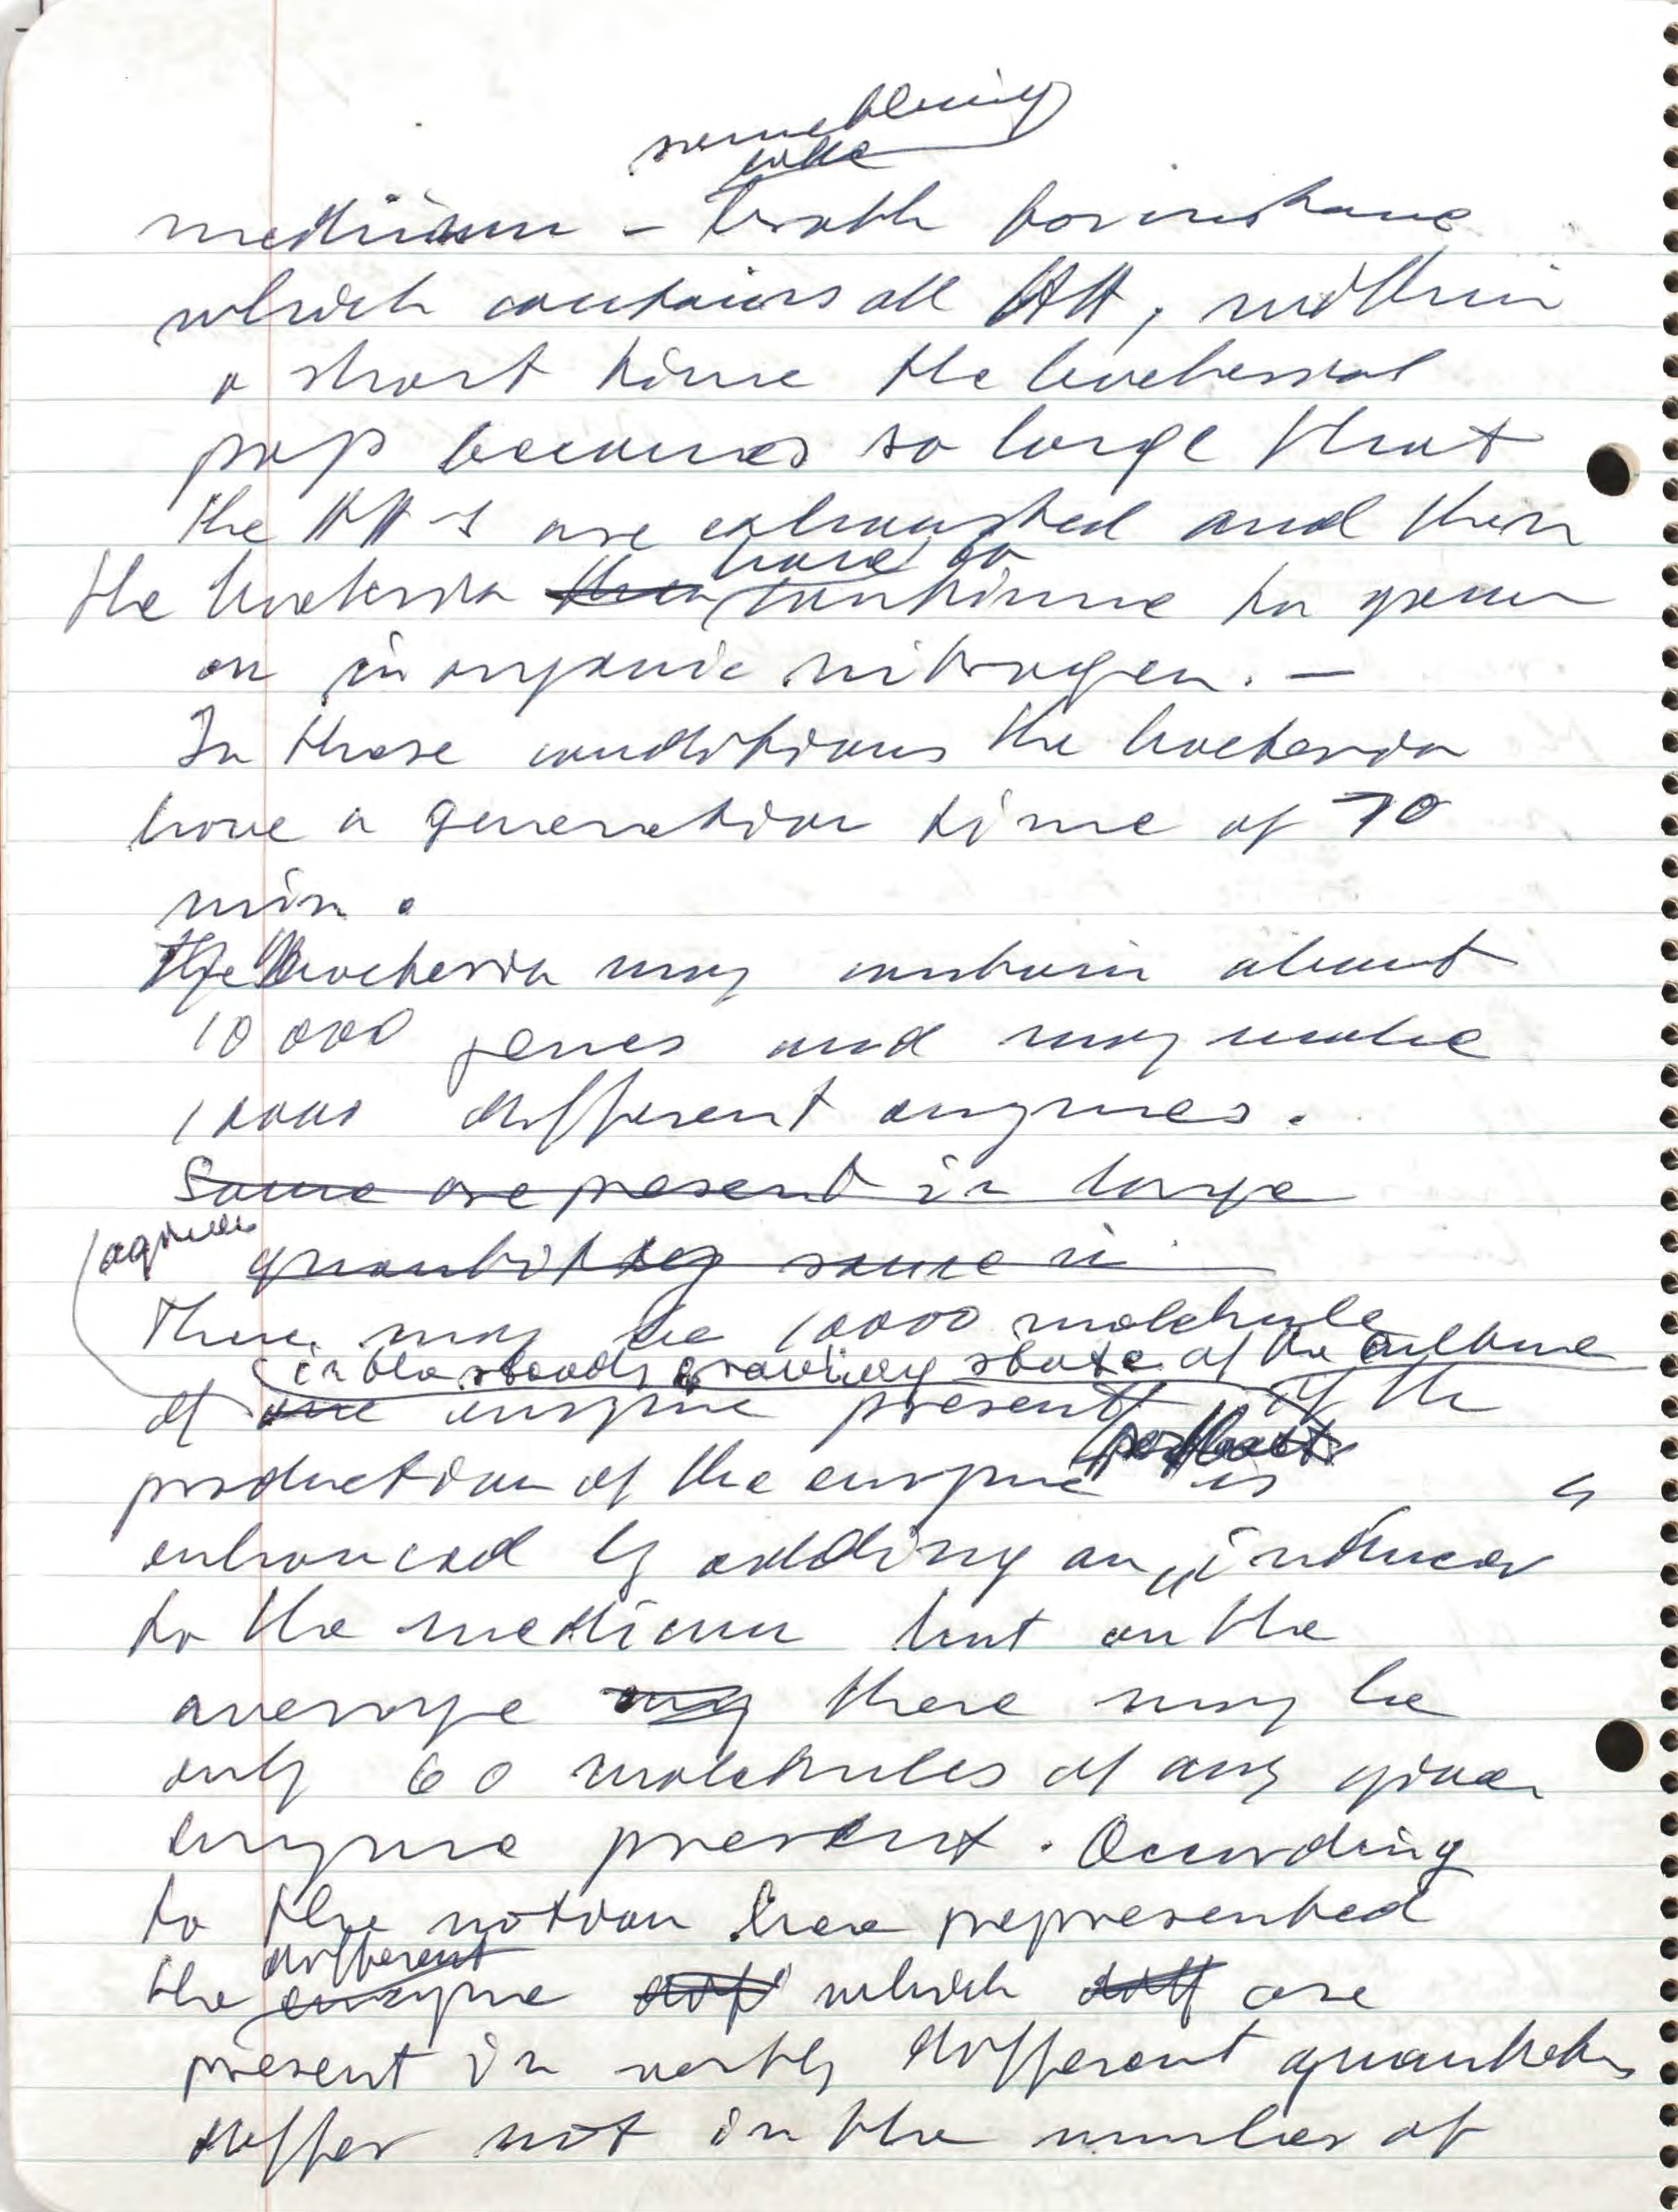 something
like
medium - broth for instance
which contains all AA, within
a short time the bacterial
pop becomes so large that
the AA-s are exhausted and then
have to
the bacteria then continue to grow
on inorganic nitrogen. —
In these conditions the bacteria
have a generation time of 70
min.
The Bacteria may contain about
10 000 genes and may make
10000 different enzymes.
Some are present in large
a given
quantity some in
There may be 10000 molecule
in the steady growing state of the culture
of one enzyme present if the
production of the enzyme is
enhanced by adding an „inducer"
to the medium but on the
average any there may be
only 60 molecules of any given
enzyme present. According
to the notion here prepresented
different
the enzyme diff which diff are
present in vastly different quantities
differ not in the number of